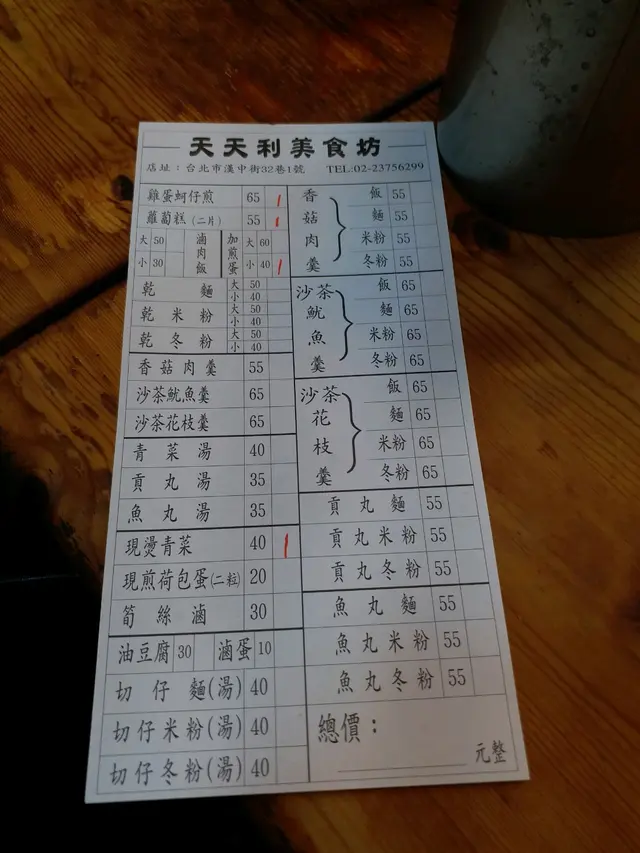 天天利美食坊
店址：台北市漢中街32巷1號 TEL:02-23756299
雞蛋蚵仔煎 65 |
蘿蔔糕(二片) 55 |
滷肉飯 大 50 小 30
加煎蛋 大 60 小 40 |
乾麵 大 50 小 40
乾米粉 大 50 小 40
乾冬粉 大 50 小 40
香菇肉羹 55
沙茶魷魚羹 65
沙茶花枝羹 65
青菜湯 40
貢丸湯 35
魚丸湯 35
現燙青菜 40 |
現煎荷包蛋(二粒) 20
筍絲滷 30
油豆腐 30 滷蛋 10
切仔麵(湯) 40
切仔米粉(湯) 40
切仔冬粉(湯) 40
香菇肉羹
飯 55
麵 55
米粉 55
冬粉 55
沙茶魷魚羹
飯 65
麵 65
米粉 65
冬粉 65
沙茶花枝羹
飯 65
麵 65
米粉 65
冬粉 65
貢丸麵 55
貢丸米粉 55
貢丸冬粉 55
魚丸麵 55
魚丸米粉 55
魚丸冬粉 55
總價：
元整